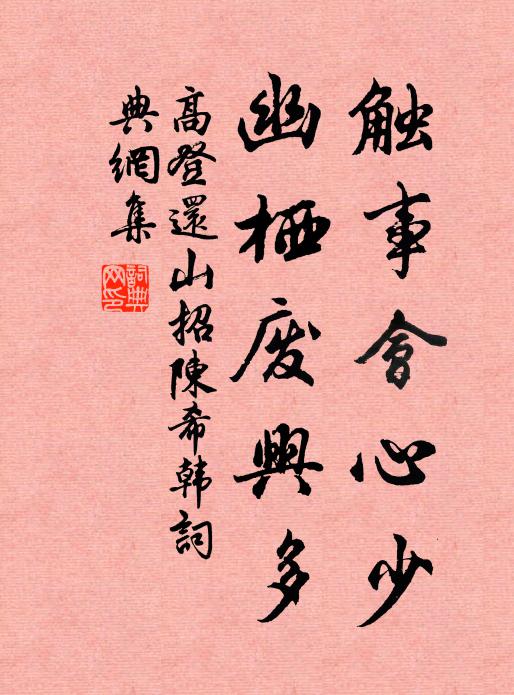 触事會心少
幽栖废興多
高登還山招陳希韩詞
典網集
詞典
网印